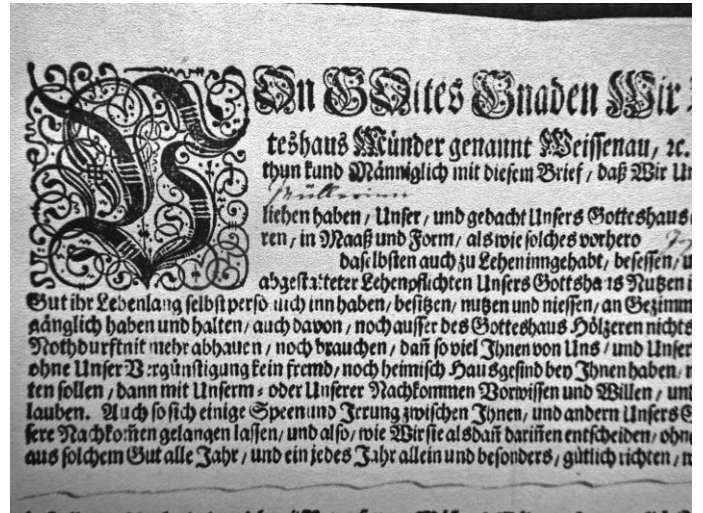 VOn GOttes Gnaden Wir
teshaus Münder genannt Weissenau, ꝛc.
thun kund Männiglich mit diesem Brief / daß Wir Un
Müllerinn
liehen haben / Unser / und gedacht Unsers Gotteshaus
ren / in Maaß und Form / als wie solches vorhero
daselbsten auch zu Lehen inngehabt / besessen / u
abgestatteter Lehenpflichten Unsers Gottshaus Nutzen i
Gut ihr Lebenlang selbst persöhnlich inn haben / besitzen / nutzen und niessen / an Gezimm
gänglich haben und halten / auch davon / noch ausser des Gotteshaus Hölzeren nichts
Nothdurft nit mehr abhauen / noch brauchen / dañ so viel Ihnen von Uns / und Unser
ohne Unser Vergünstigung kein fremd / noch heimisch Hausgesind bey Ihnen haben /
ten sollen / dann mit Unserm- oder Unserer Nachkommen Vorwissen und Willen / und
lauben. Auch so sich einige Speen und Irrung zwischen Ihnen / und andern Unsers G
sere Nachkom̃en gelangen lassen / und also / wie Wir sie alsdañ dariñen entscheiden / ohn
aus solchem Gut alle Jahr / und ein jedes Jahr allein und besonders / gütlich richten /